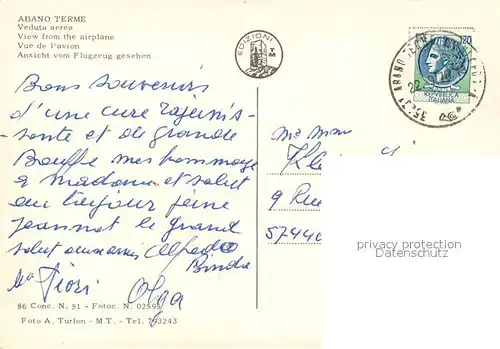 ABANO TERME
Veduta aerea
View from the airplane
Vue de l'avion
Ansicht vom Flugzeug gesehen
EDIZIONI
TM
120
REPVBBLICA
ITALIANA
ABANO TERME
Bons Souvenirs
d'une cure rajeunis-
sante et de grande
Bouffe mes hommages
a madame et salut
au toujour jeune
jeannot le grand
salut aux amis Alfredo
Fiori Olga
Mr Mme
9 Rue
57440
privacy protection
Datenschutz
86 Conc. N. 51 - Fotoc. N. 02595
Foto A. Turlon - M T. - Tel. 793243